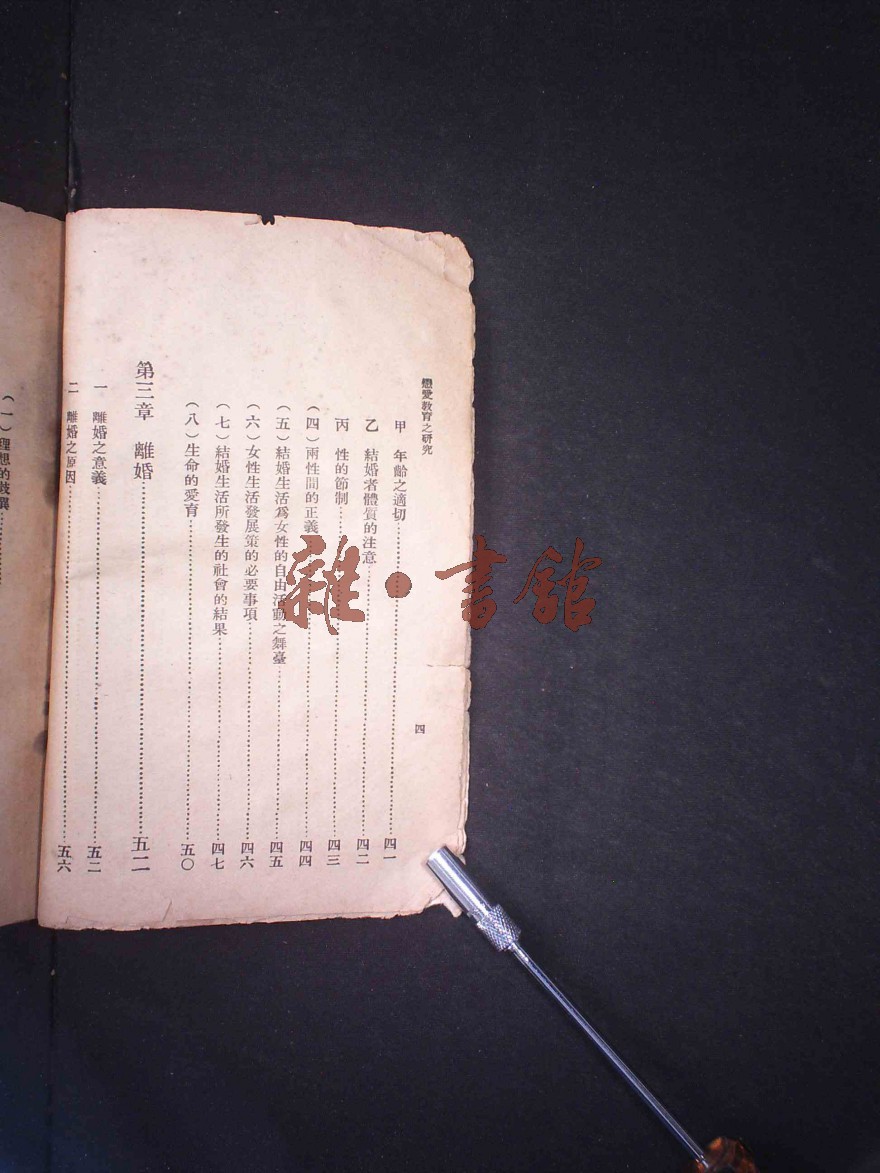 戀愛教育之研究
四
甲 年齡之適切……四一
乙 結婚者體質的注意……四二
丙 性的節制……四三
(四)兩性間的正義……四四
(五)結婚生活爲女性的自由活動之舞臺……四五
(六)女性生活發展策的必要事項……四六
(七)結婚生活所發生的社會的結果……四七
(八)生命的愛育……五〇
第三章 離婚……五二
一 離婚之意義……五二
二 離婚之原因……五六
(一)理想的歧異……
雜·書館